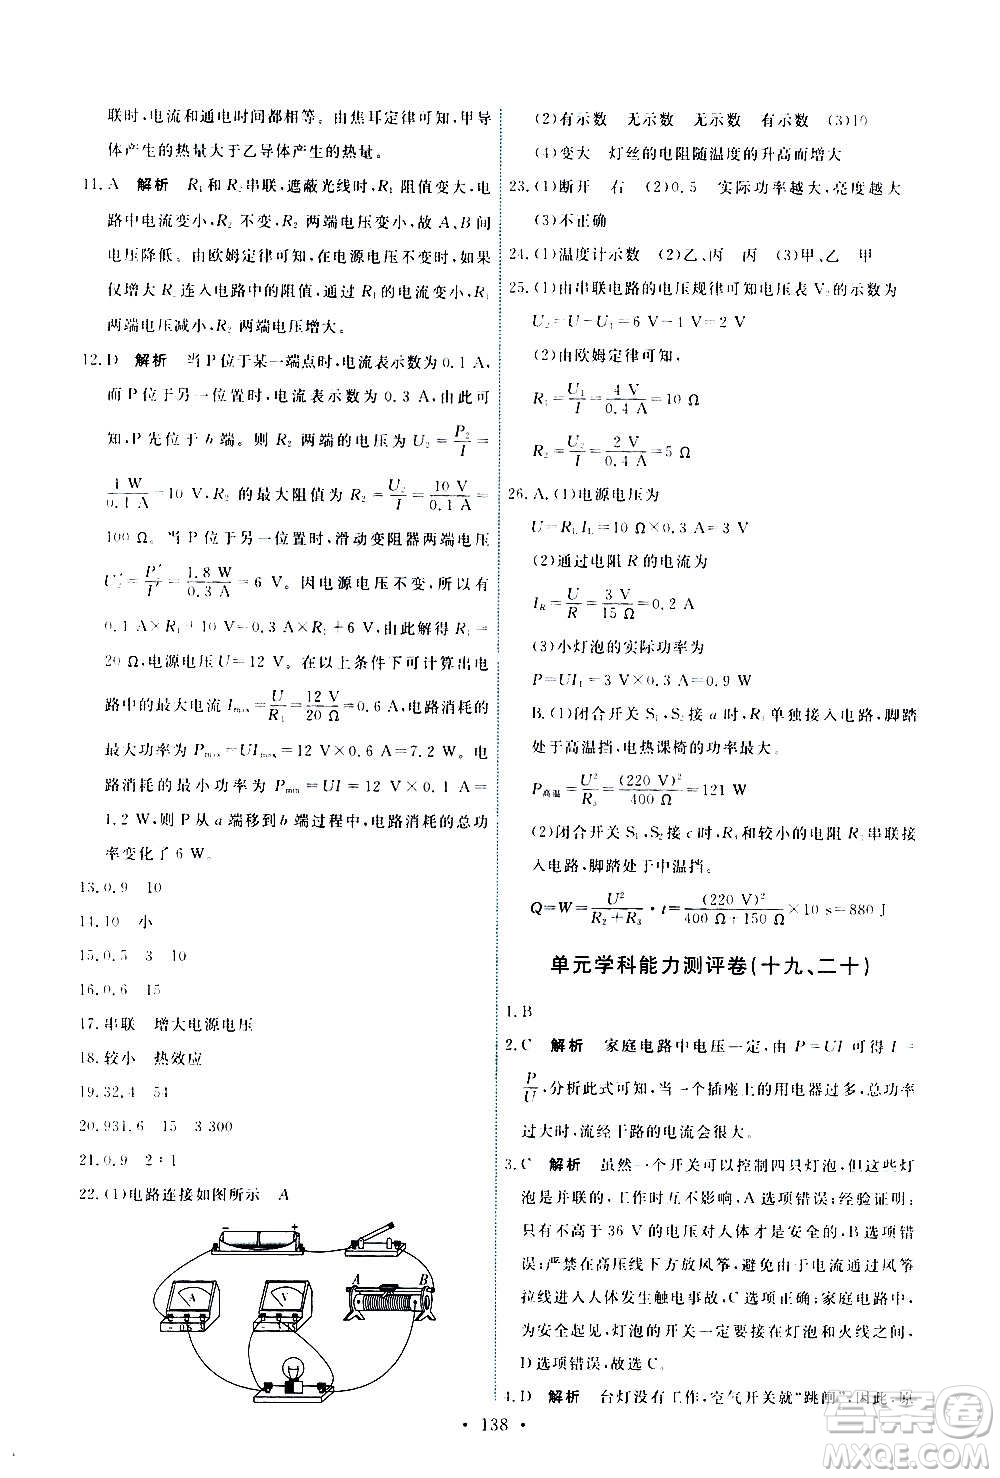 联时,电流和通电时间都相等。由焦耳定律可知,甲导
体产生的热量大于乙导体产生的热量。
11.A 解析 R₁和 R₂串联,遮蔽光线时,R₁ 阻值变大,电
路中电流变小,R₂ 不变,R₂ 两端电压变小,故 A、B 间
电压降低。由欧姆定律可知,在电源电压不变时,如果
仅增大 R₂ 连入电路中的阻值,通过 R₁的电流变小,R₁
两端电压减小,R₂ 两端电压增大。
12.D 解析 当 P 位于某一端点时,电流表示数为 0.1 A,
而 P 位于另一位置时,电流表示数为 0.3 A,由此可
知,P 先位于 b 端。则 R₂ 两端的电压为 U₂=P₂/I=
1 W/0.1 A=10 V,R₂ 的最大阻值为 U₂/I=10 V/0.1 A=
100 Ω。当 P 位于另一位置时,滑动变阻器两端电压
U₂′=P′/I′=1.8 W/0.3 A=6 V。因电源电压不变,所以有
0.1 A×R₁+10 V=0.3 A×R₁+6 V,由此解得 R₁=
20 Ω,电源电压 U=12 V。在以上条件下可计算出电
路中的最大电流 Imax=U/R₁=12 V/20 Ω=0.6 A,电路消耗的
最大功率为 Pmax=UImax=12 V×0.6 A=7.2 W。电
路消耗的最小功率为 Pmin=UI=12 V×0.1 A=
1.2 W,则 P 从 a 端移到 b 端过程中,电路消耗的总功
率变化了 6 W。
13.0.9 10
14.10 小
15.0.5 3 60
16.0.6 15
17.串联 增大电源电压
18.较小 热效应
19.32.4 54
20.931.6 15 3 300
21.0.9 2∶1
22.(1)电路连接如图所示 A
A
V
A
B
(2)有示数 无示数 无示数 有示数 (3)10
(4)变大 灯丝的电阻随温度的升高而增大
23.(1)断开 右 (2)0.5 实际功率越大,亮度越大
(3)不正确
24.(1)温度计示数 (2)乙、丙 丙 (3)甲、乙 甲
25.(1)由串联电路的电压规律可知电压表 V₂的示数为
U₂=U−U₁=6 V−4 V=2 V
(2)由欧姆定律可知,
R₁=U₁/I=4 V/0.4 A=10 Ω
R₂=U₂/I=2 V/0.4 A=5 Ω
26.A.(1)电源电压为
U=RLIL=10 Ω×0.3 A=3 V
(2)通过电阻 R 的电流为
IR=U/R=3 V/15 Ω=0.2 A
(3)小灯泡的实际功率为
P=UIL=3 V×0.3 A=0.9 W
B.(1)闭合开关 S₁,S₂ 接 a 时,R₃ 单独接入电路,脚踏
处于高温挡,电热课椅的功率最大。
P高温=U²/R₃=(220 V)²/400 Ω=121 W
(2)闭合开关 S₁,S₂ 接 c 时,R₃ 和较小的电阻 R₂ 串联接
入电路,脚踏处于中温挡。
Q=W=U²/R₂+R₃·t=(220 V)²/400 Ω+150 Ω×10 s=880 J
单元学科能力测评卷(十九、二十)
1.B
2.C 解析 家庭电路中电压一定,由 P=UI 可得 I=
P/U,分析此式可知,当一个插座上的用电器过多,总功率
过大时,流经干路的电流会很大。
3.C 解析 虽然一个开关可以控制四只灯泡,但这些灯
泡是并联的,工作时互不影响,A 选项错误;经验证明:
只有不高于 36 V 的电压对人体才是安全的,B 选项错
误;严禁在高压线下方放风筝,避免由于电流通过风筝
拉线进入人体发生触电事故,C 选项正确;家庭电路中,
为安全起见,灯泡的开关一定要接在灯泡和火线之间,
D 选项错误,故选 C。
4.D 解析 台灯没有工作,空气开关就“跳闸”,因此,原
• 138 •
答案圈
MXQE.COM